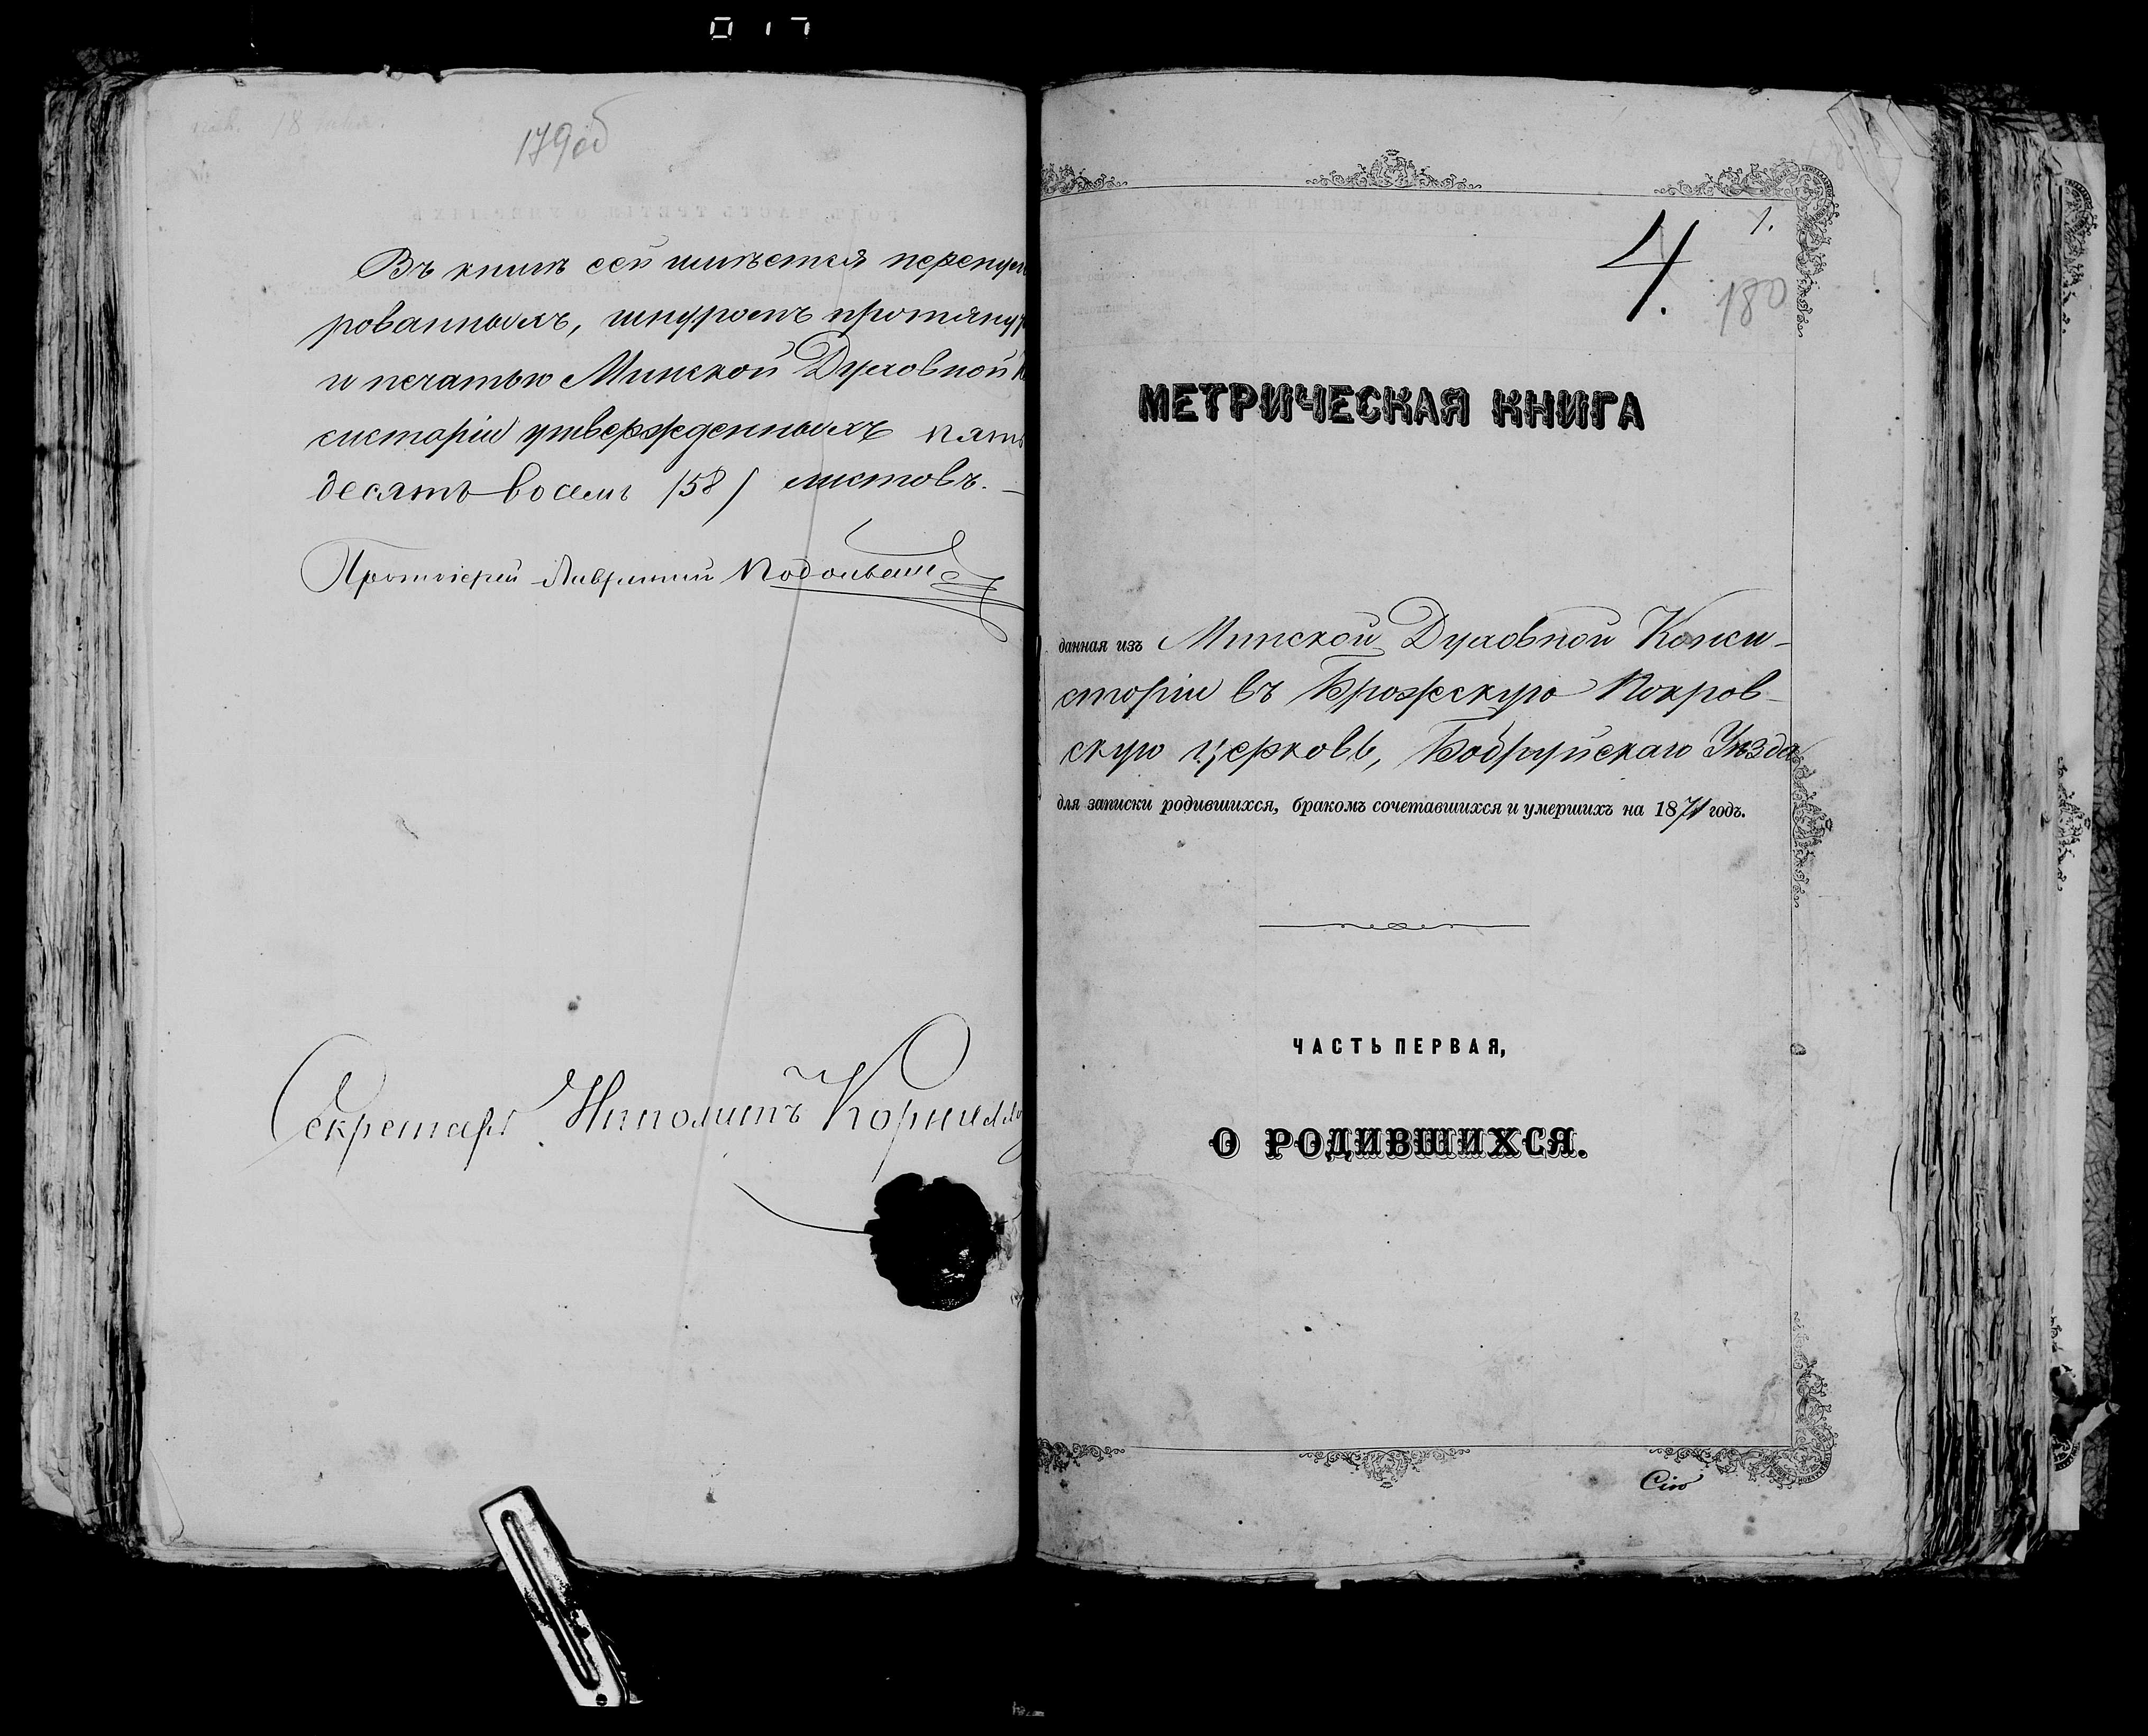 017
179об
Въ книгѣ сей имѣется перенуме
рованныхъ, шнуромъ протяну
и печатью Минской Духовной К
систоріи утвержденныхъ пять
десятъ восемь /58/ листовъ. —
Протоіерей Лаврентій
Секретарь Ипполитъ
4. 1.
180
МЕТРИЧЕСКАЯ КНИГА
данная изъ Минской Духовной Конси-
сторіи въ Брожскую Покров-
скую церковь, Бобруйскаго Уѣзда
для записки родившихся, бракомъ сочетавшихся и умершихъ на 1871 годъ.
ЧАСТЬ ПЕРВАЯ,
О РОДИВШИХСЯ.
Сію